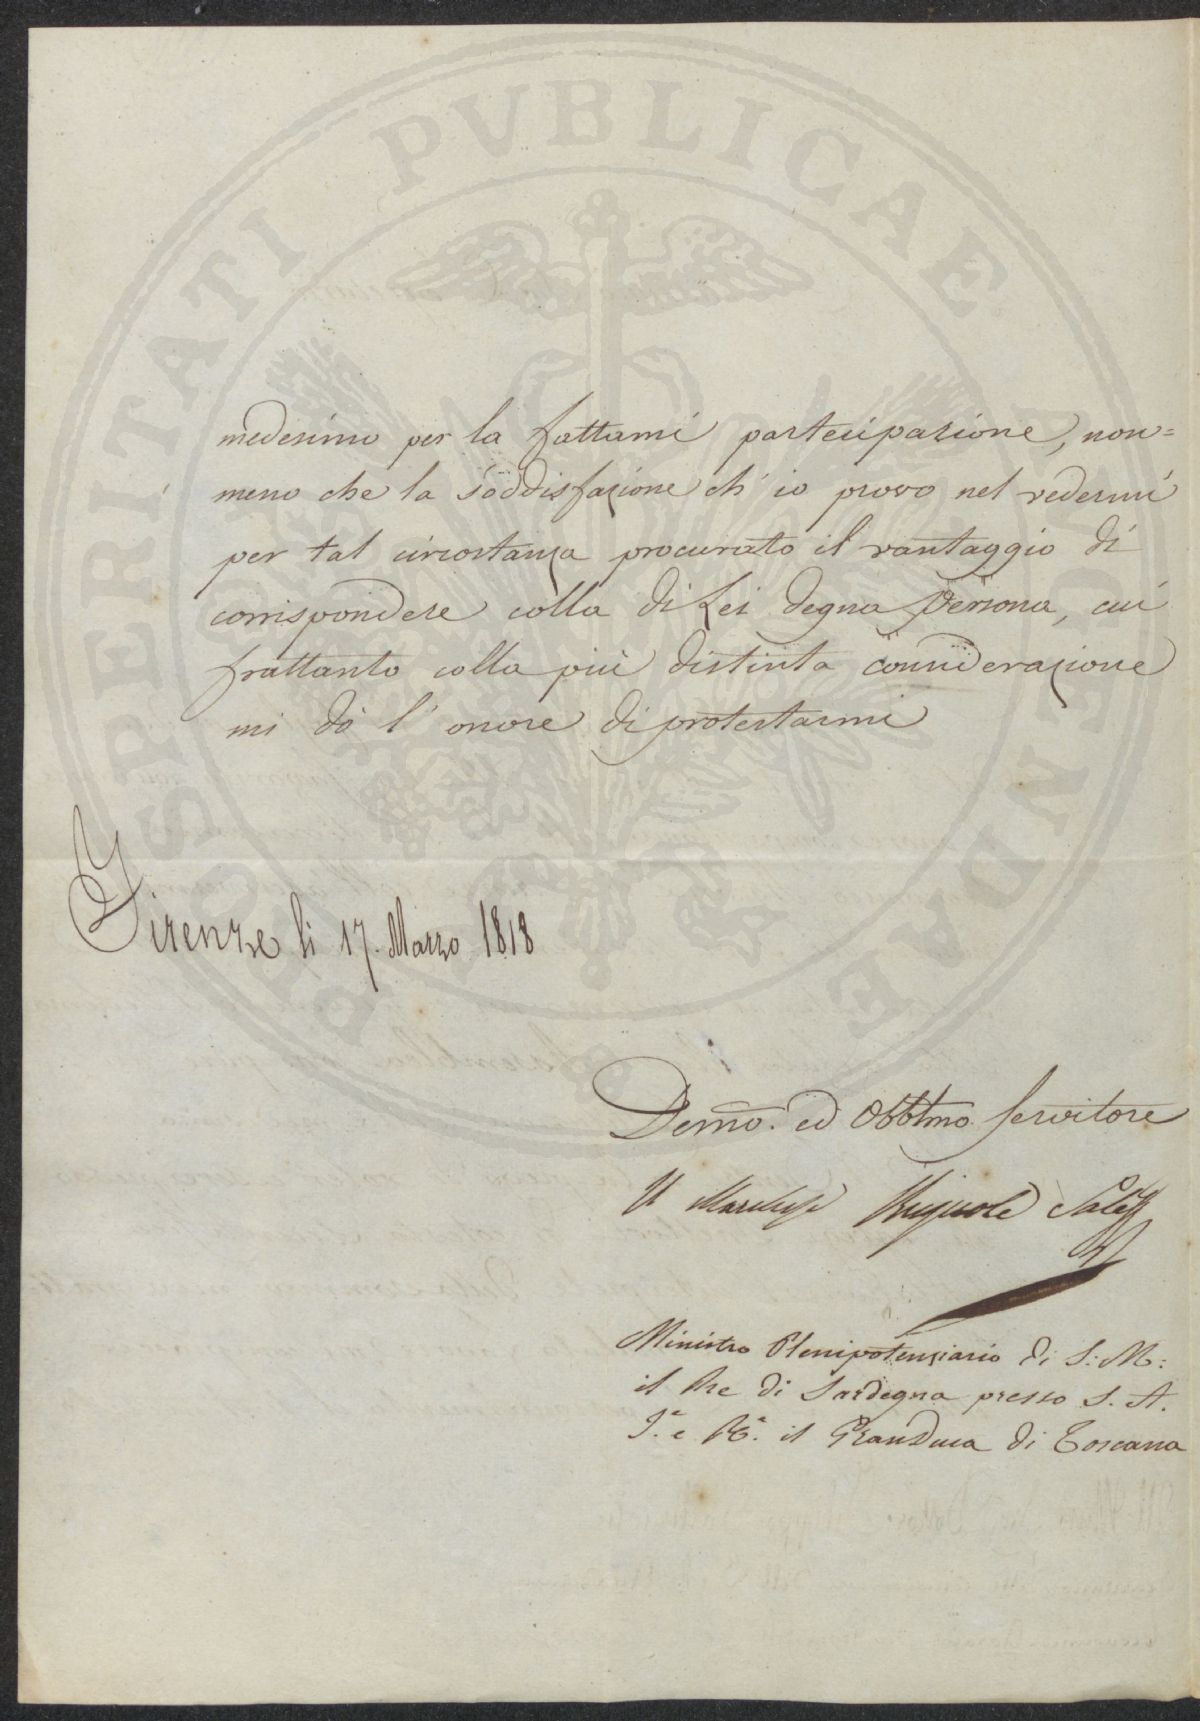 PROSPERITATI PVBLICAE AVGENDAE
medesimo per la fattami partecipazione, non=
meno che la soddisfazione ch' io provo nel vedermi
per tal circostanza procurato il vantaggio di
corrispondere colla di Lei degna Persona, cui
frattanto colla più distinta considerazione
mi dò l' onore di protestarmi
Firenze li 17. Marzo 1818
Devmo. ed Obblmo Servitore
Il Marchese Brignole Sale
Ministro Plenipotenziario di S: M:
il Re di Sardegna presso S. A.
I.e e R.e il GranDuca di Toscana